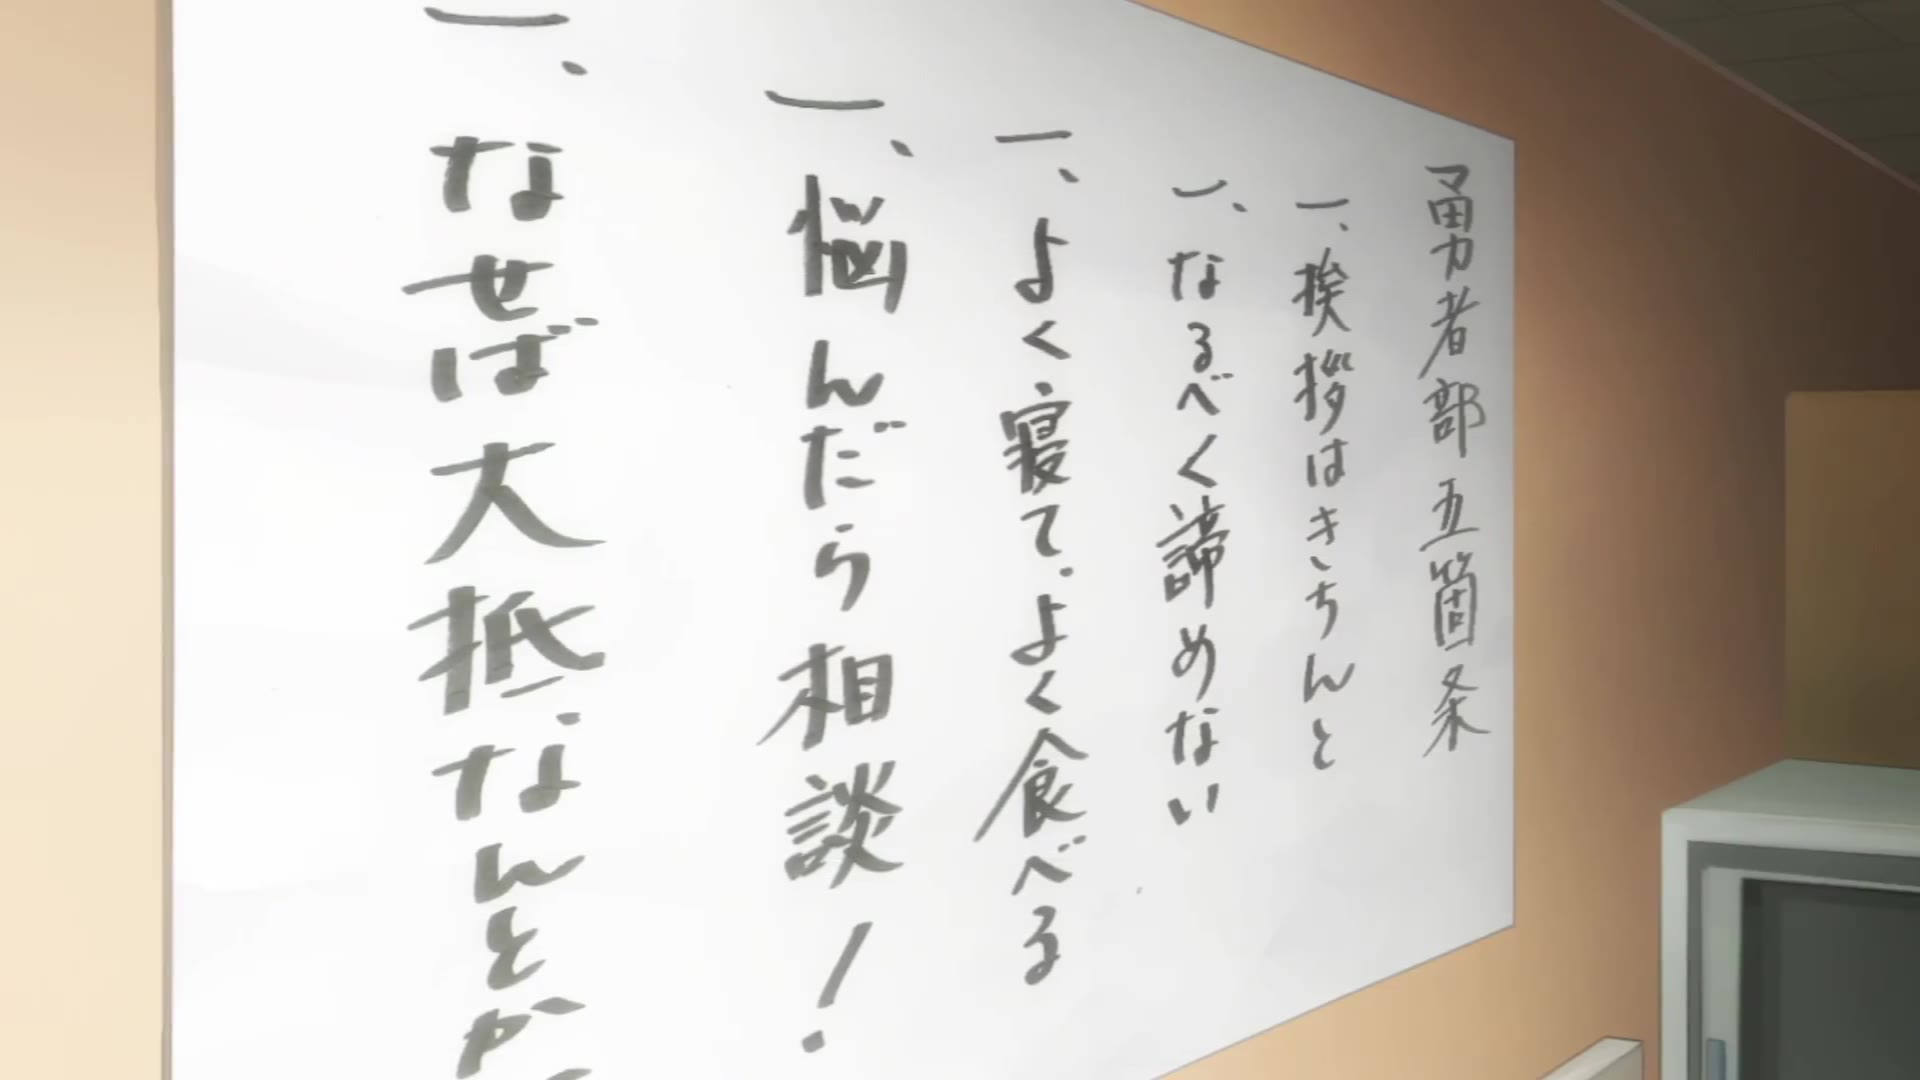 勇者部五箇条
一、挨拶はきちんと
一、なるべく諦めない
一、よく寝て、よく食べる
一、悩んだら相談!
一、なせば大抵なんとか